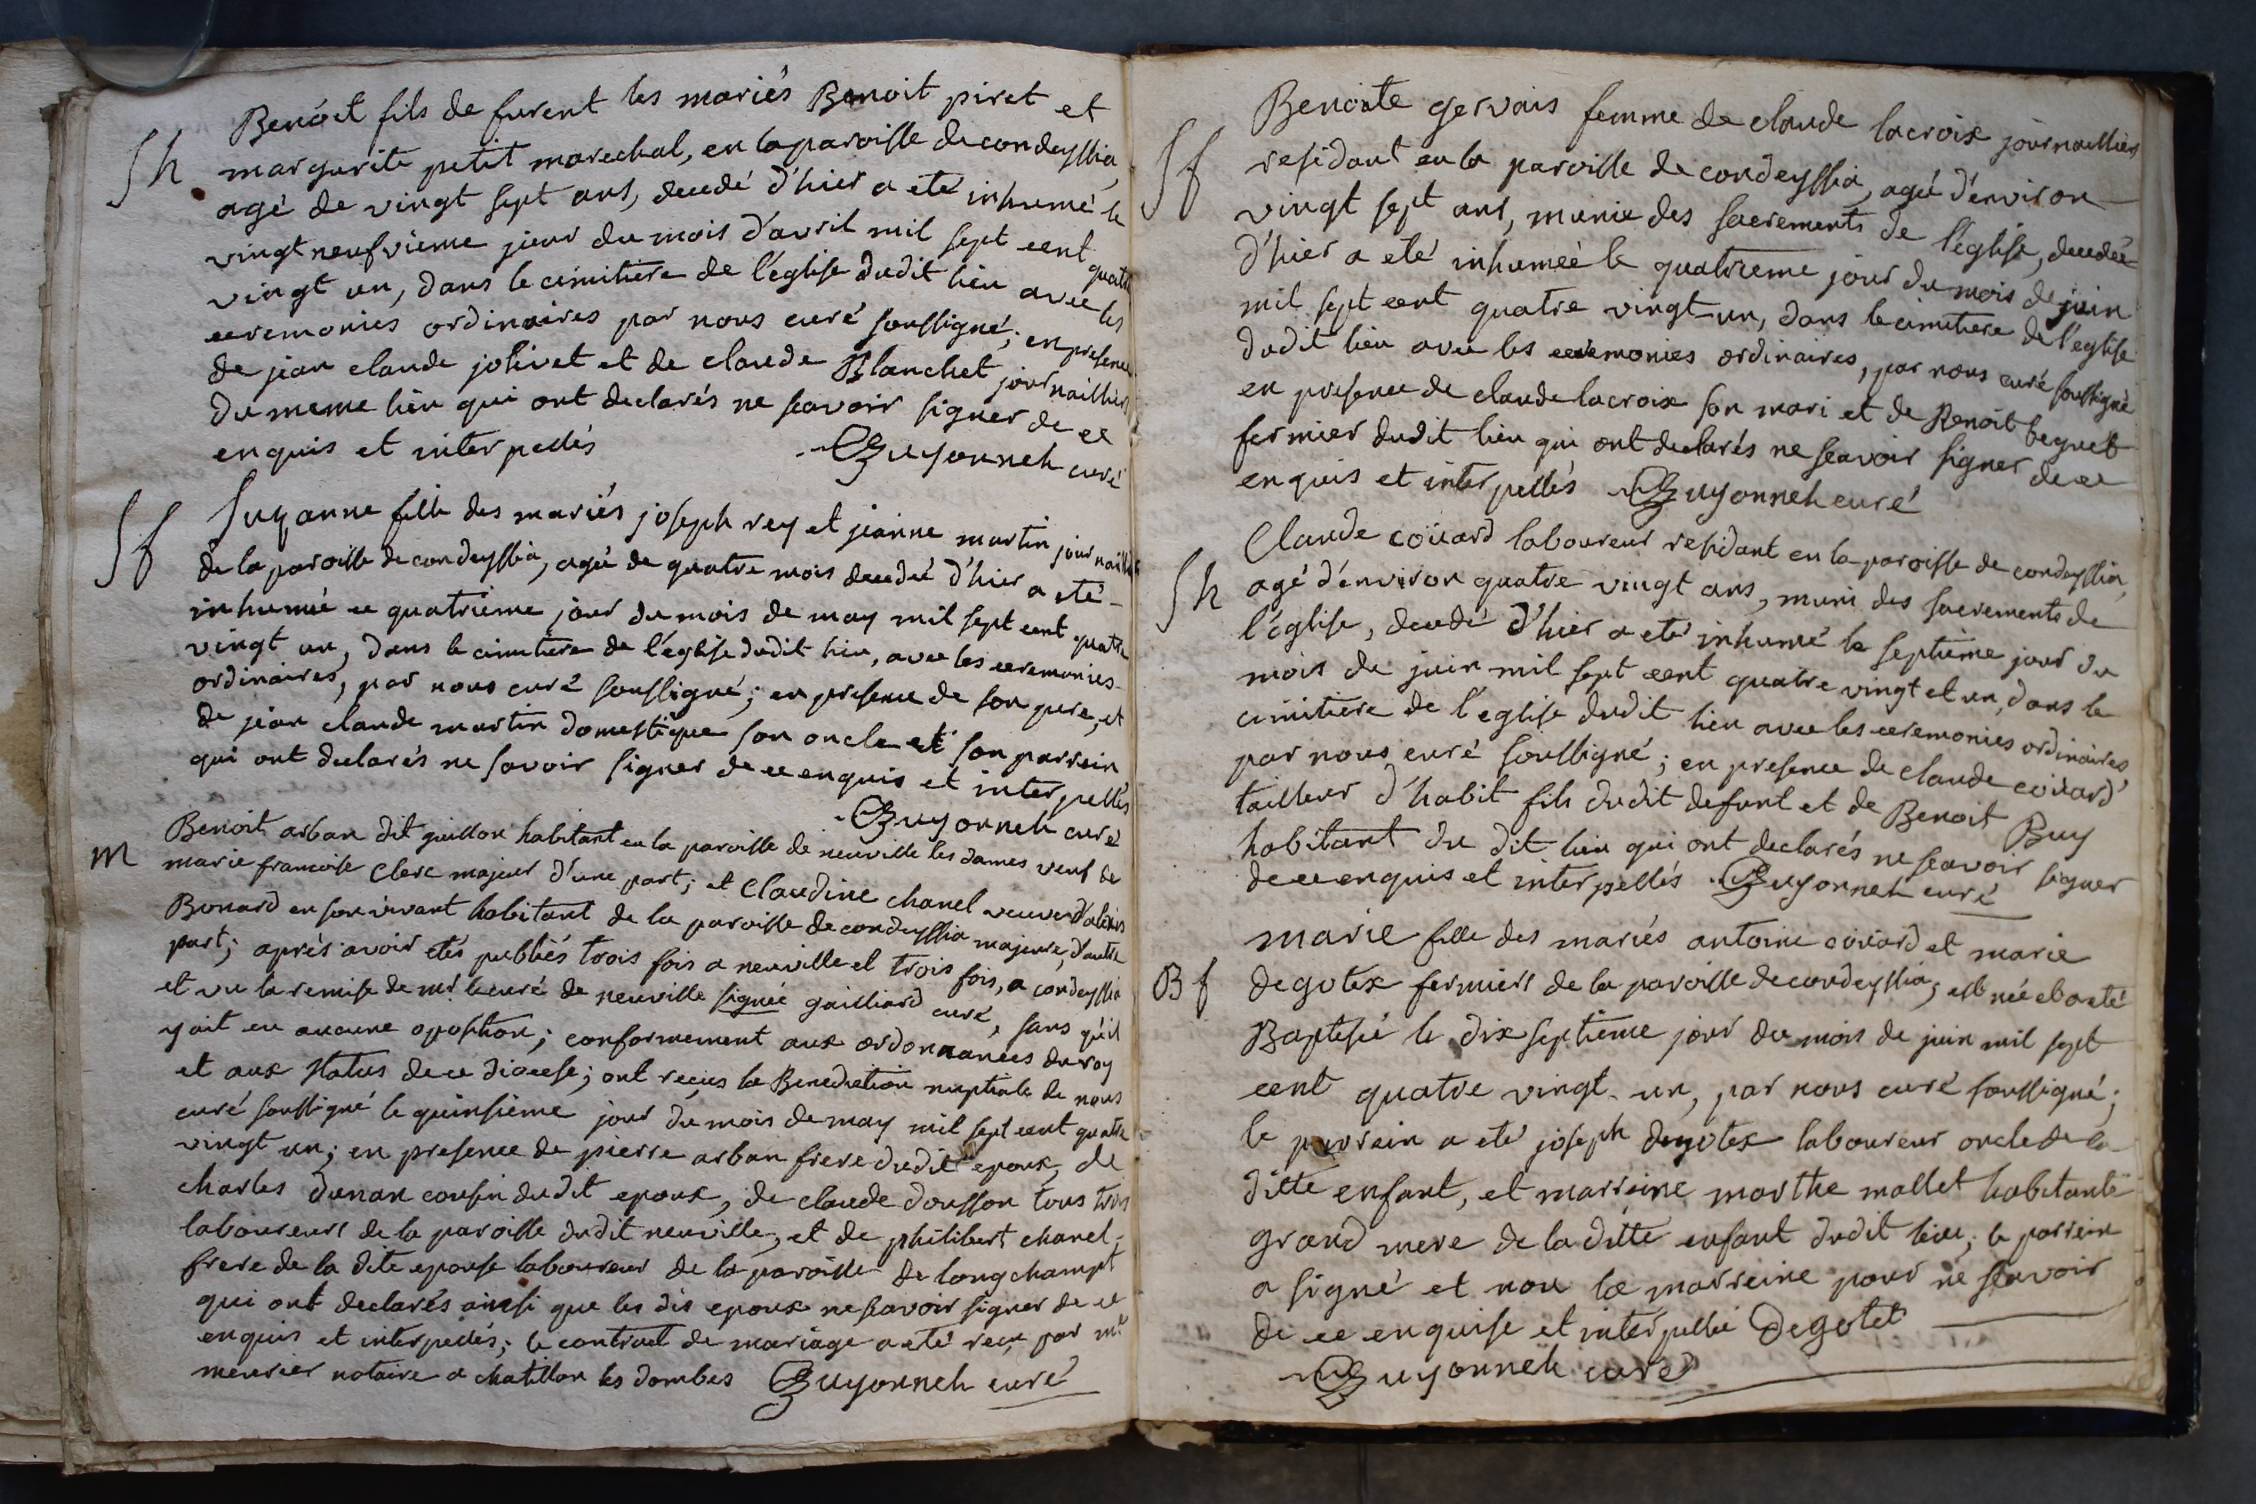 Sh
Benoit fils de furent les mariés Benoit piret et
margurite petit marechal, en la paroisse de condeyssia,
agé de vingt sept ans, decedé d'hier a eté inhumé le
vingt neufvieme jour du mois d'avril mil sept cent quatre
vingt un, dans le cimitiere de l'eglise dudit lieu avec les
ceremonies ordinaires par nous curé soussigné; en presence
de jean claude jolivet et de claude Blanchet journailliers
du meme lieu qui ont declarés ne scavoir signer de ce
enquis et interpellés Guyonneh curé
Sf
Suzanne fille des mariés joseph rey et jeanne martin journailliers
de la paroisse de condeyssia, agée de quatre mois decedée d'hier a eté
inhumée ce quatrieme jour du mois de may mil sept cent quatre
vingt un, dans le cimitiere de l'église dudit lieu, avec les ceremonies
ordinaires, par nous curé soussigné; en presence de son pere, et
de jean claude martin domestique son oncle et son parrein
qui ont declarés ne savoir signer de ce enquis et interpellés
Guyonneh curé
m
Benoit arban dit guillon habitant en la paroisse de neuville les dames veuf de
marie francoise Clerc majeur d'une part; et Claudine chanel veuve d'alexis
Bonard en son vivant habitant de la paroisse de condeyssia majeure, d'autre
part; aprés avoir etés publiés trois fois a neuville et trois fois, a condeyssia
et vu la remise de mr le curé de neuville signée gailliard curé, sans qu'il
y ait eu aucune oposition; conformement aux ordonnances du roy
et aux status de ce diocese; ont reçus la Benediction nuptiale de nous
curé soussigné le quinsieme jour du mois de may mil sept cent quatre
vingt un; en presence de pierre arban frere dudit epoux, de
charles dunan cousin dudit epoux, de claude dousson tous trois
laboureurs de la paroisse dudit neuville, et de philibert chanel
frere de la dite epouse laboureur de la paroisse de longchampt
qui ont declarés ainsi que les dis epoux ne scavoir signer de ce
enquis et interpellés; le contract de mariage a eté reçu par me
meurier notaire a chatillon les dombes Guyonneh curé
Sf
Benoite gervais femme de claude lacroix journaillier
residant en la paroisse de condeyssia, agée d'environ
vingt sept ans, munie des sacrements de l'église, decedée
d'hier a eté inhumée le quatrieme jour du mois de juin
mil sept cent quatre vingt un, dans le cimitiere de l'eglise
dudit lieu avec les ceremonies ordinaires, par nous curé soussigné
en presence de claude lacroix son mari et de Benoit beguet
fermier dudit lieu qui ont declarés ne scavoir signer de ce
enquis et interpellés Guyonneh curé
Sh
Claude coüard laboureur residant en la paroisse de condeyssia,
agé d'environ quatre vingt ans, muni des sacrements de
l'église, decedé d'hier a eté inhumé le septieme jour du
mois de juin mil sept cent quatre vingt et un, dans le
cimitiere de l'eglise dudit lieu avec les ceremonies ordinaires
par nous curé soussigné; en presence de claude coüard
tailleur d'habit fils dudit defunt et de Benoit Buy
habitant du dit lieu qui ont declarés ne scavoir signer
de ce enquis et interpellés Guyonneh curé
Bf
marie fille des mariés antoine coüard et marie
degotex fermiers de la paroisse de condeyssia, est née et a eté
Baptisée le dix septieme jour du mois de juin mil sept
cent quatre vingt un, par nous curé soussigné;
le parrein a eté joseph degotex laboureur oncle de la
ditte enfant, et marreine marthe mallet habitante
grand mere de la ditte enfant dudit lieu; le parrein
a signé et non la marreine pour ne scavoir
de ce enquise et interpellée Degotet
Guyonneh curé